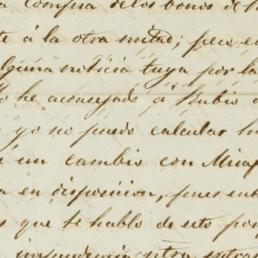 compra de los bonos de
te á la otra mitad; pero e
alguna noticia tuya por la
Yo he aconsejado á Rubio
yo no puedo calcular
un cambio con Mira
a en disposicion, pues ent
s que te hablo de esto por